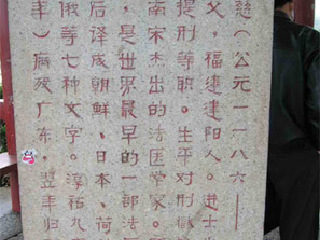 慈（公元一一八六—
父，福建建阳人。进士
提刑等职。生平对刑狱
南宋杰出的法医学家。
，是世界最早的一部法
后译成朝鲜、日本、荷
俄等七种文字。淳祐九
年）病殁广东，翌年归